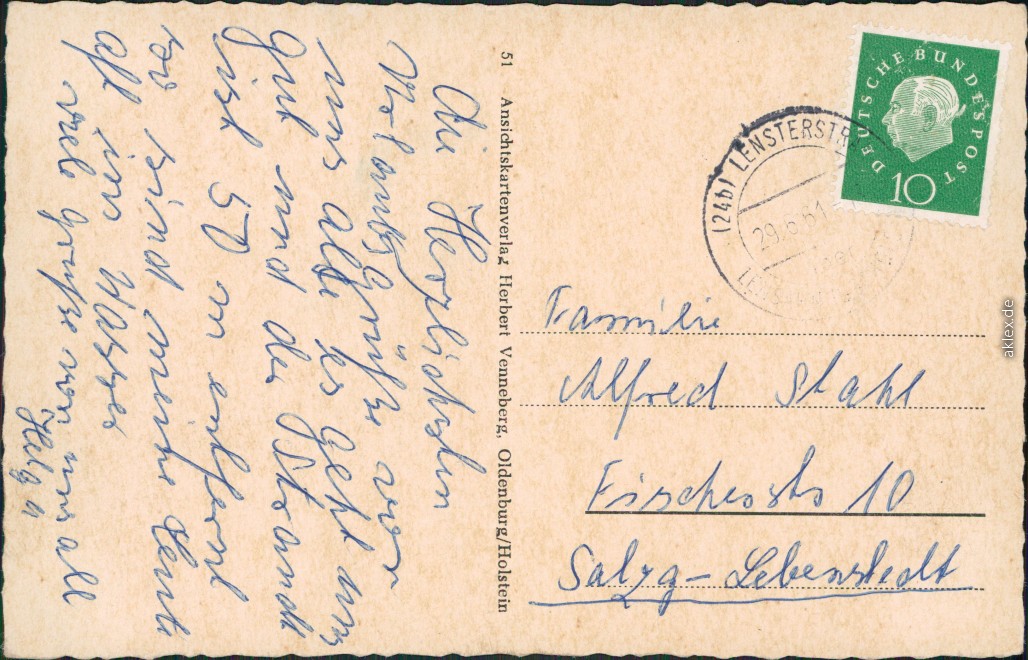 Die Herzlichsten
Uhrlaubsgrüße von
uns alle es geht uns
gut und der Strandt
ist 50 m entfernt
so sind meine Leute
oft im Wasser
viele grüße von uns all
Helga
51 Ansichtskartenverlag Herbert Venneberg, Oldenburg/Holstein
DEUTSCHE BUNDESPOST
10
(24b) LENSTERSTR
29.6.61
Familie
Alfred Stahl
Fischerstr 10
Salzg - Lebenstedt
aklex.de